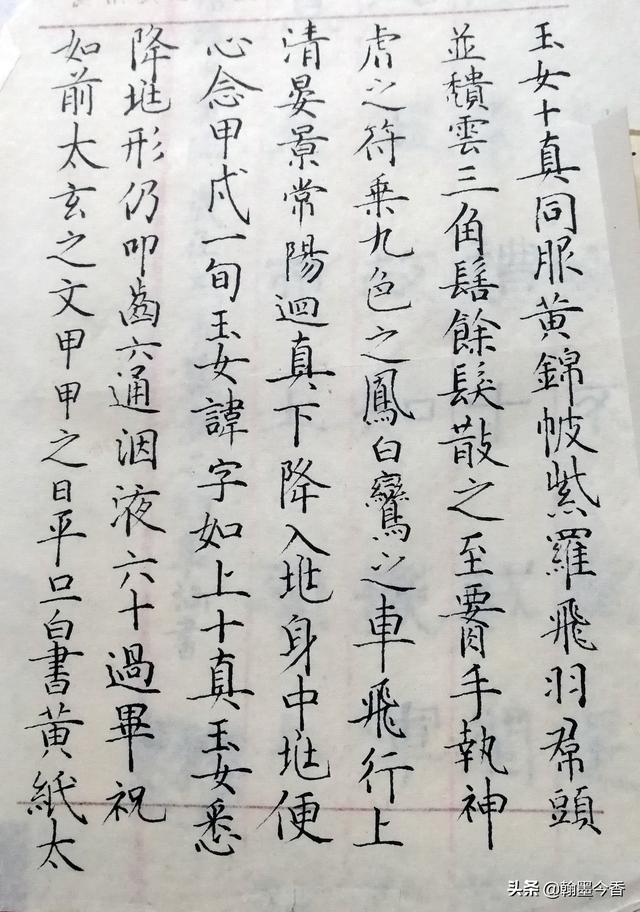 玉女十真同服黃錦帔紫羅飛羽帬頭
並頹雲三角髻餘髮散之至腰手執神
虎之符乘九色之鳳白鸞之車飛行上
清晏景常陽迴真下降入兆身中兆便
心念甲戌一旬玉女諱字如上十真玉女悉
降兆形仍叩齒六通咽液六十過畢祝
如前太玄之文甲申之日平旦白書黃紙太
头条 @翰墨今香